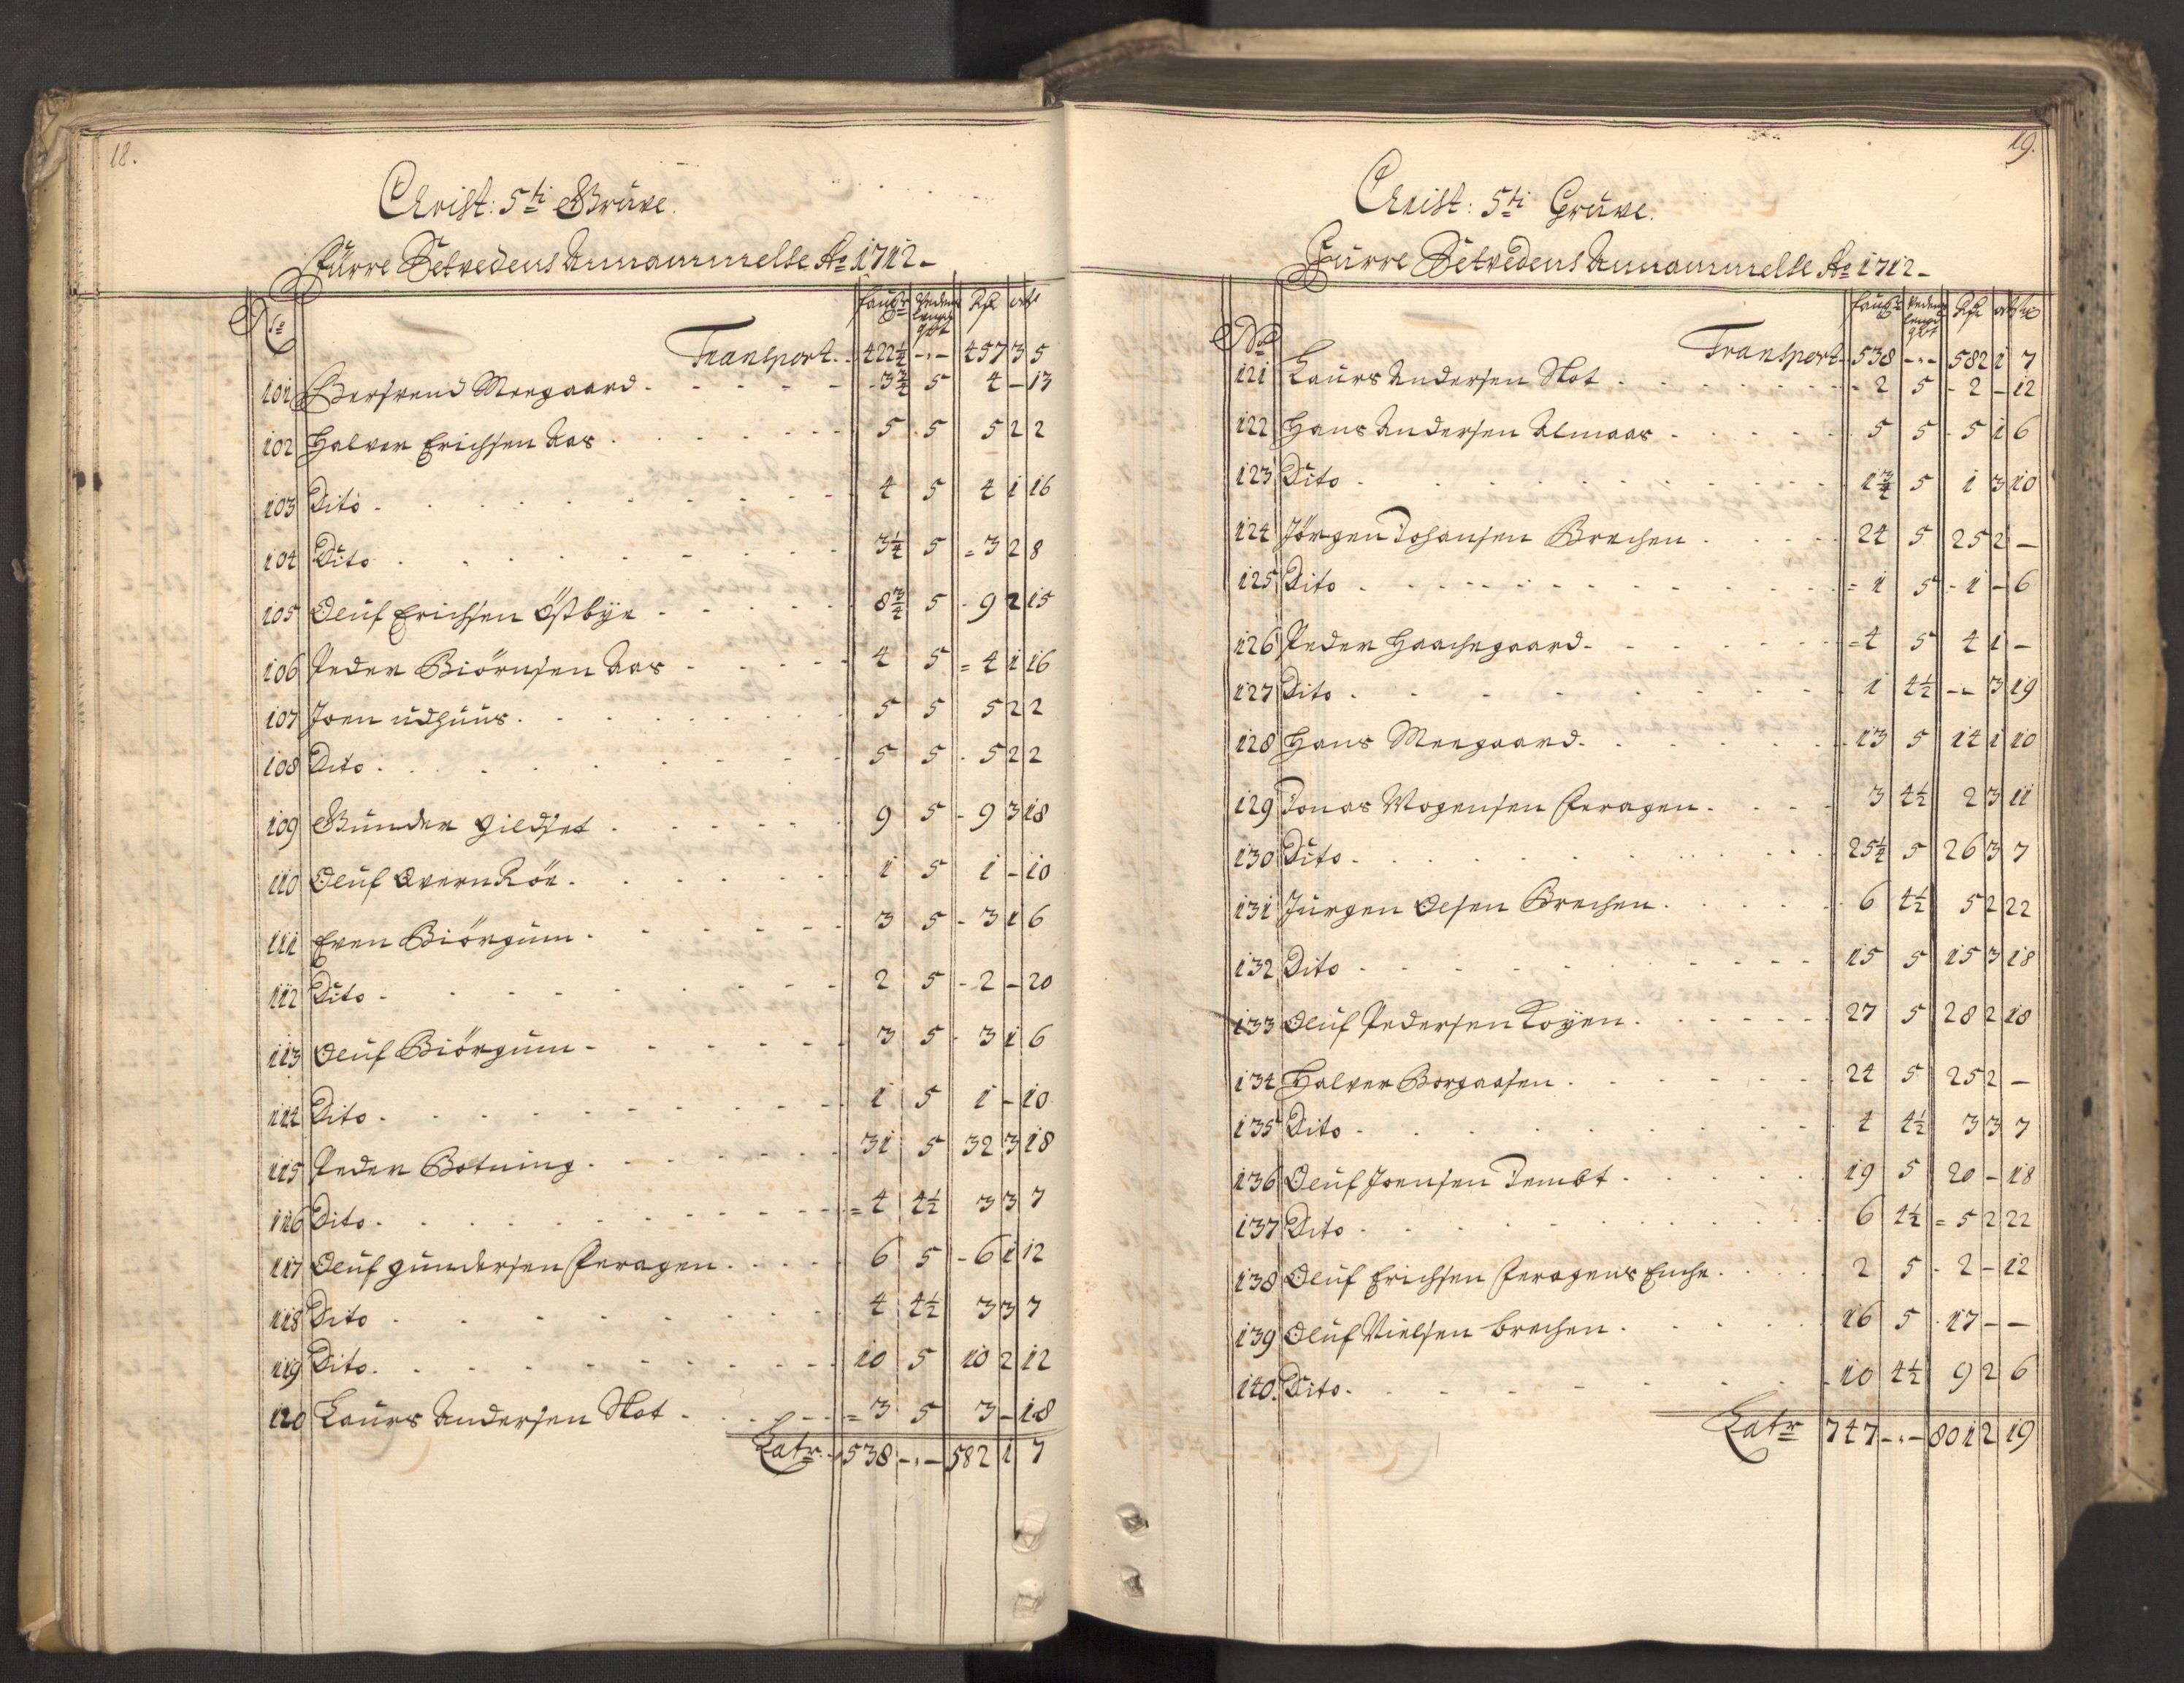 18.
Christ: 5ti Gruve.
Furre Setvedens Annammelse Ao 1712-
No faufn Vedens lengd qvt Rdr ort s
Transport. 422 1/4 -"- 457 3 5
101 Bersvend Moegaard. 3 3/4 5 4 - 13
102 Halvor Erichsen Aas 5 5 5 2 2
103 Dito 4 5 4 1 16
104 Dito 3 1/4 5 3 2 8
105 Oluf Erichsen Östbye 8 3/4 5 9 2 15
106 Peder Biörnsen Aas 4 5 4 1 16
107 Joen udhuus. 5 5 5 2 2
108 Dito. 5 5 5 2 2
109 Gunder Gildset 9 5 9 3 18
110 Oluf Qvern Röe. 1 5 1 - 10
111 Even Biörgum 3 5 3 1 6
112 Dito 2 5 2 - 20
113 Oluf Biörgum 3 5 3 1 6
114 Dito. 1 5 1 - 10
115 Peder Botning. 31 5 32 3 18
116 Dito. 4 4 1/2 3 3 7
117 Oluf gundersen Feragen. 6 5 6 1 12
118 Dito 4 4 1/2 3 3 7
119 Dito. 10 5 10 2 12
120 Laurs Andersen Slot 3 5 3 - 18
Latr. 538 -"- 582 1 7
19.
Christ: 5ti Gruve.
Furre Setvedens Annammelse Ao 1712-
No faufn Vedens lengd qvt Rdr ort s
Transport 538 -"- 582 1 7
121 Laurs Andersen Slot 2 5 2 - 12
122 Hans Andersen Almaas 5 5 5 1 6
123 Dito 1 3/4 5 1 3 10
124 Jörgen Johansen Brechen 24 5 25 2 -
125 Dito 1 5 1 - 6
126 Peder Haachegaard 4 5 4 1 -
127 Dito 1 4 1/2 -- 3 19
128 Hans Moegaard. 13 5 14 1 10
129 Jonas Mogensen Feragen. 3 4 1/2 2 3 11
130 Dito. 25 1/4 5 26 3 7
131 Jürgen Olsen Brechen. 6 4 1/2 5 2 22
132 Dito 15 5 15 3 18
133 Oluf Pedersen Kojen. 27 5 28 2 18
134 Halvor Borgaasen 24 5 25 2 -
135 Dito 4 4 1/2 3 3 7
136 Oluf Joensen Tembt 19 5 20 - 18
137 Dito 6 4 1/2 5 2 22
138 Oluf Erichsen Feragens Enche. 2 5 2 - 12
139 Oluf Nielsen brechen 16 5 17 - -
140. Dito. 10 4 1/2 9 2 6
Latr 747 -"- 801 2 19